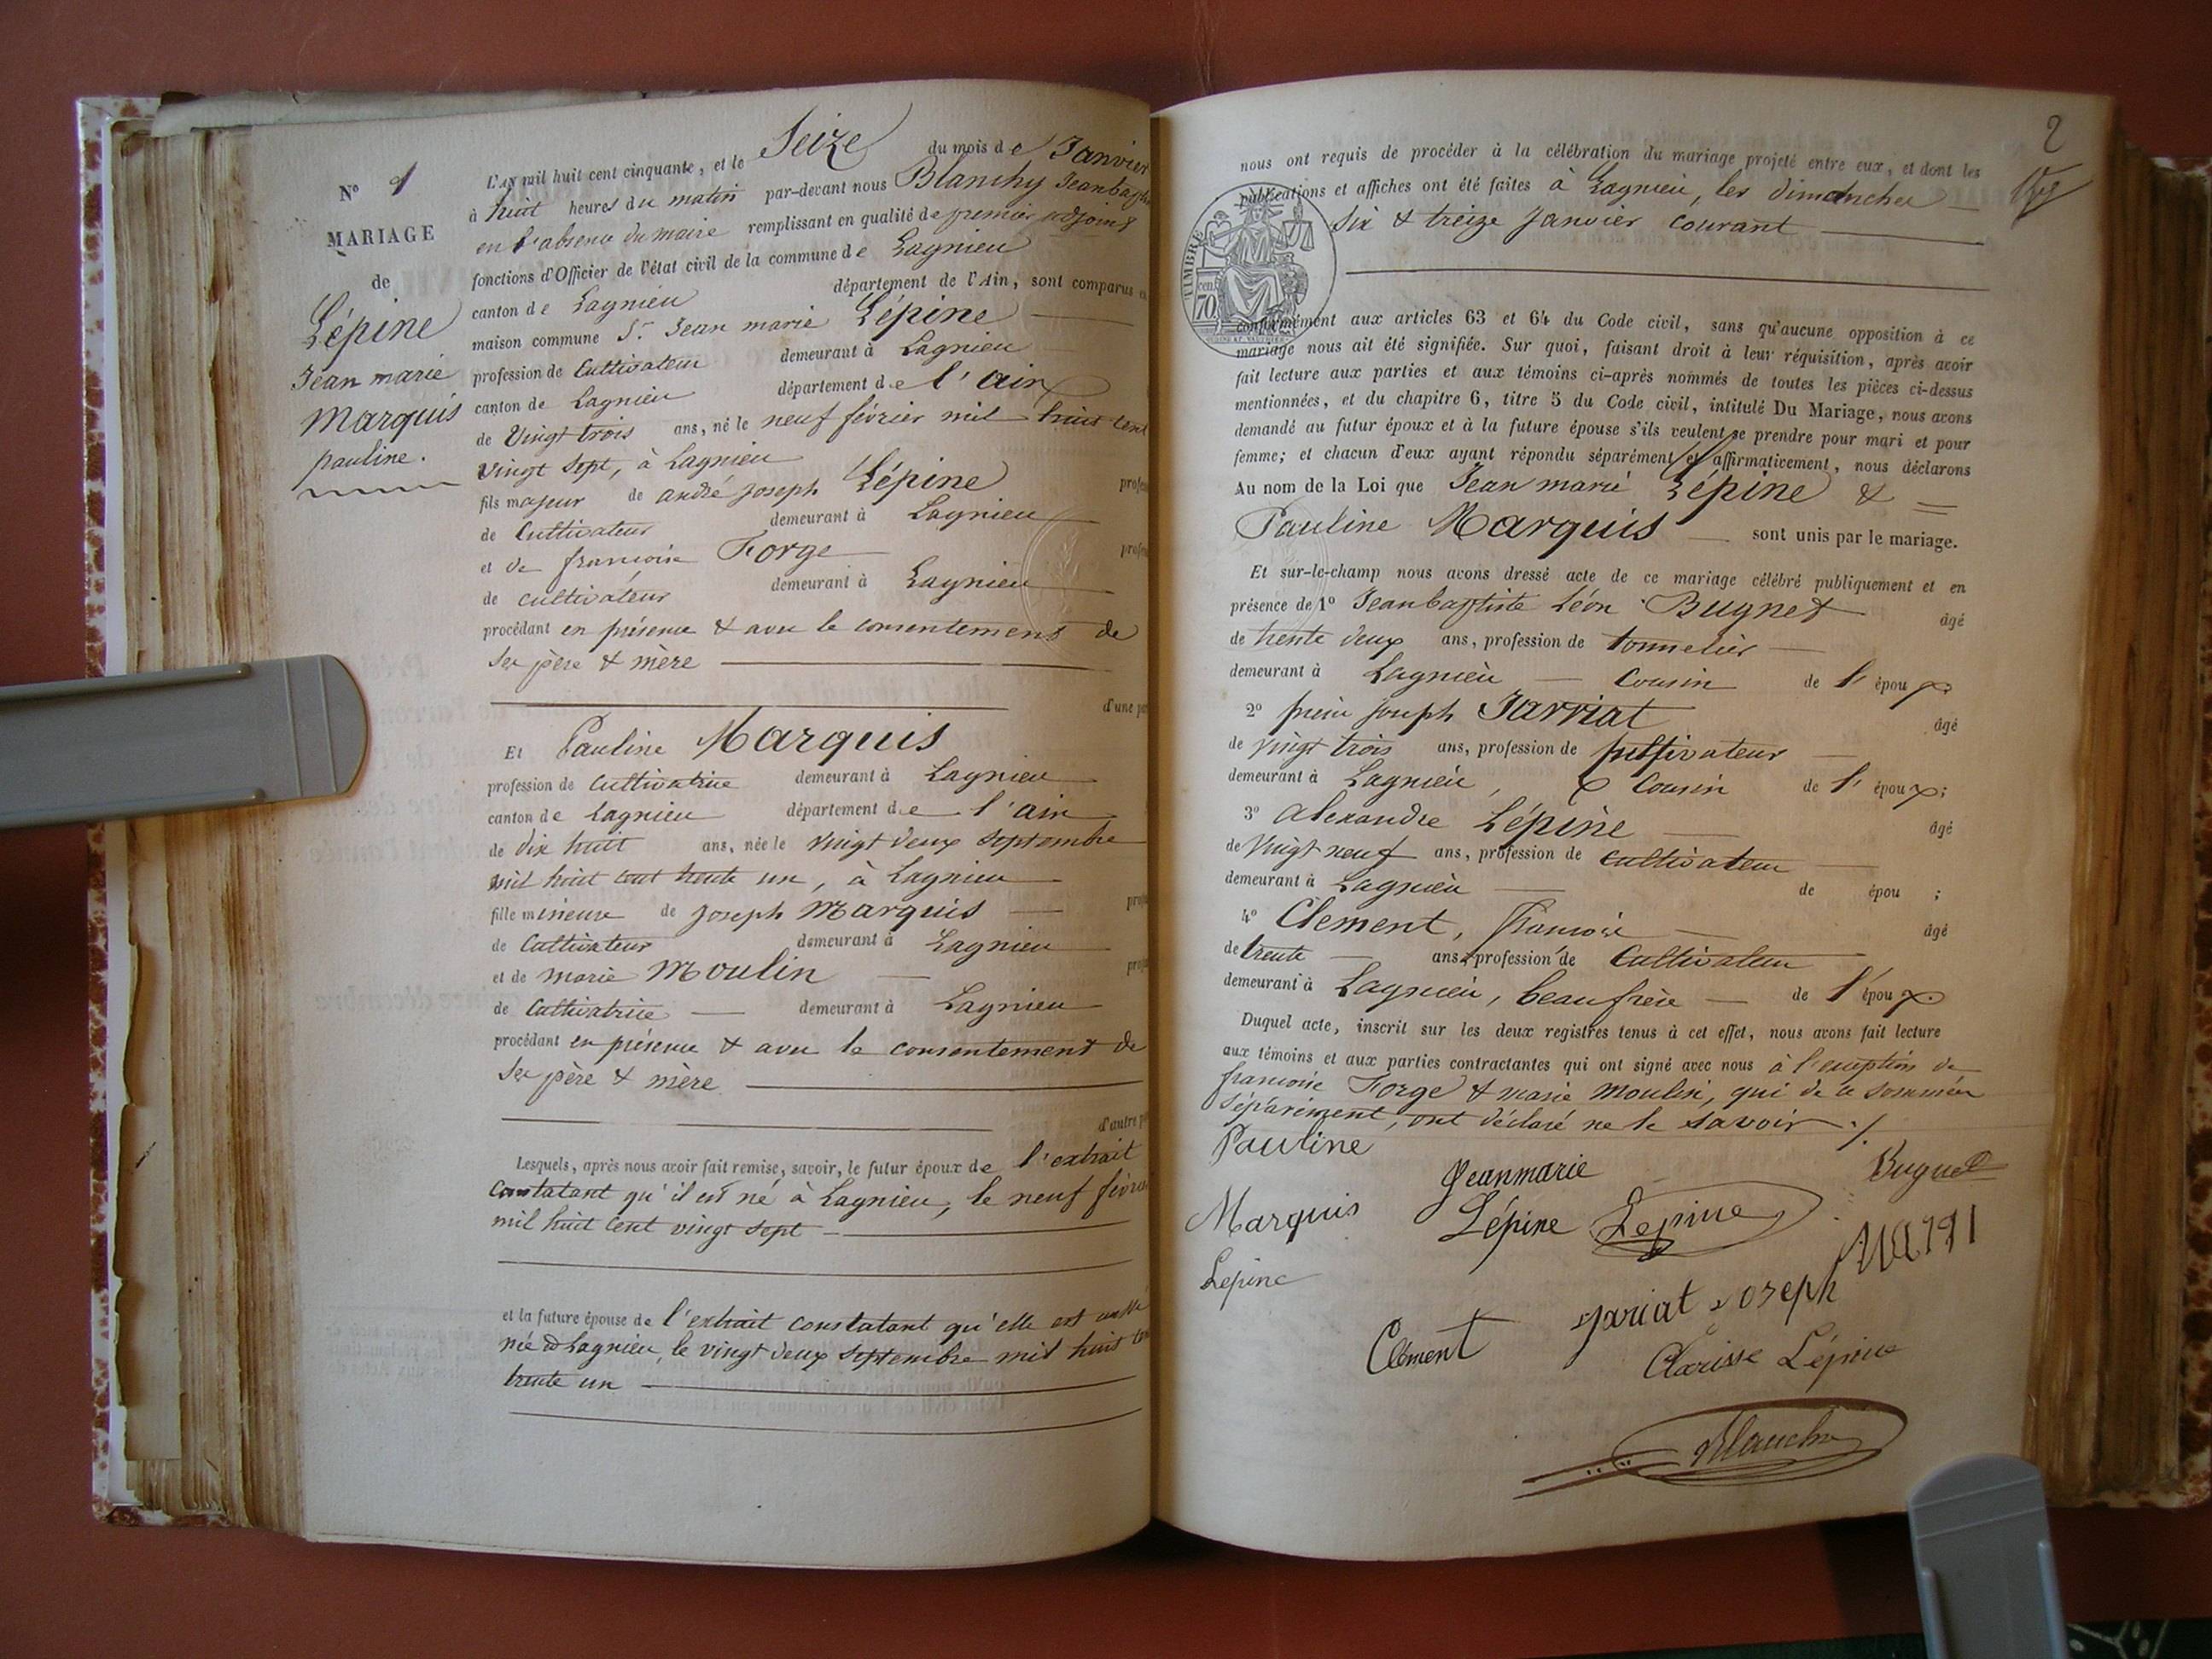 N° 1
MARIAGE
de
Lépine
Jean marie
Marquis
pauline.
L'AN mil huit cent cinquante, et le Seize du mois de Janvier
à huit heures du matin par-devant nous Blanchy Jean
en l'absence du maire remplissant en qualité de premier adjoint
fonctions d'Officier de l'état civil de la commune de Lagnieu
canton de Lagnieu département de l'Ain, sont comparus
maison commune Jean marie Lépine
profession de Cultivateur demeurant à Lagnieu
canton de Lagnieu département de l'ain
de Vingt trois ans, né le neuf février mil huit cent
vingt Sept, à Lagnieu
fils majeur de andré Joseph Lépine
de Cultivateur demeurant à Lagnieu
et de françoise Forge
de cultivateur demeurant à Lagnieu
procédant en présence & avec le consentement de
ses père & mère
d'une
Et Pauline Marquis
profession de Cultivatrice demeurant à Lagnieu
canton de Lagnieu département de l'ain
de dix huit ans, née le vingt deux Septembre
mil huit cent trente un, à Lagnieu
fille mineure de Joseph Marquis
de Cultivateur demeurant à Lagnieu
et de marie Moulin
de Cultivatrice demeurant à Lagnieu
procédant en présence & avec le consentement de
ses père & mère
d'autre
Lesquels, après nous avoir fait remise, savoir, le futur époux de l'extrait
constatant qu'il est né à Lagnieu, le neuf
mil huit cent vingt sept
et la future épouse de l'extrait constatant qu'elle est
née à Lagnieu, le vingt deux Septembre mil huit
trente un
2
nous ont requis de procéder à la célébration du mariage projeté entre eux, et dont les
publications et affiches ont été faites à Lagnieu, les dimanches
six & treize Janvier courant
TIMBRE
70
conformément aux articles 63 et 64 du Code civil, sans qu'aucune opposition à ce
mariage nous ait été signifiée. Sur quoi, faisant droit à leur réquisition, après avoir
fait lecture aux parties et aux témoins ci-après nommés de toutes les pièces ci-dessus
mentionnées, et du chapitre 6, titre 5 du Code civil, intitulé Du Mariage, nous avons
demandé au futur époux et à la future épouse s'ils veulent se prendre pour mari et pour
femme; et chacun d'eux ayant répondu séparément et affirmativement, nous déclarons
Au nom de la Loi que Jean marie Lépine &
Pauline Marquis sont unis par le mariage.
Et sur-le-champ nous avons dressé acte de ce mariage célébré publiquement et en
présence de 1° Jean baptiste Léon Bugnet âgé
de trente deux ans, profession de tonnelier
demeurant à Lagnieu Cousin de l' époux
2° Joseph Jarriat âgé
de vingt trois ans, profession de cultivateur
demeurant à Lagnieu, Cousin de l' époux;
3° alexandre Lépine âgé
de Vingt neuf ans, profession de cultivateur
demeurant à Lagnieu de épou ;
4° Clement, françois âgé
de trente ans, profession de Cultivateur
demeurant à Lagnieu, beau frère de l' époux.
Duquel acte, inscrit sur les deux registres tenus à cet effet, nous avons fait lecture
aux témoins et aux parties contractantes qui ont signé avec nous à l'exception de
françoise Forge & marie Moulin, qui de ce sommées
séparément, ont déclaré ne le savoir ./.
Pauline
Jeanmarie
Bugnet
Marquis
Lépine
Lepine
Lepine
Clément
Jariat Joseph
Clarisse Lépine
Blanchy